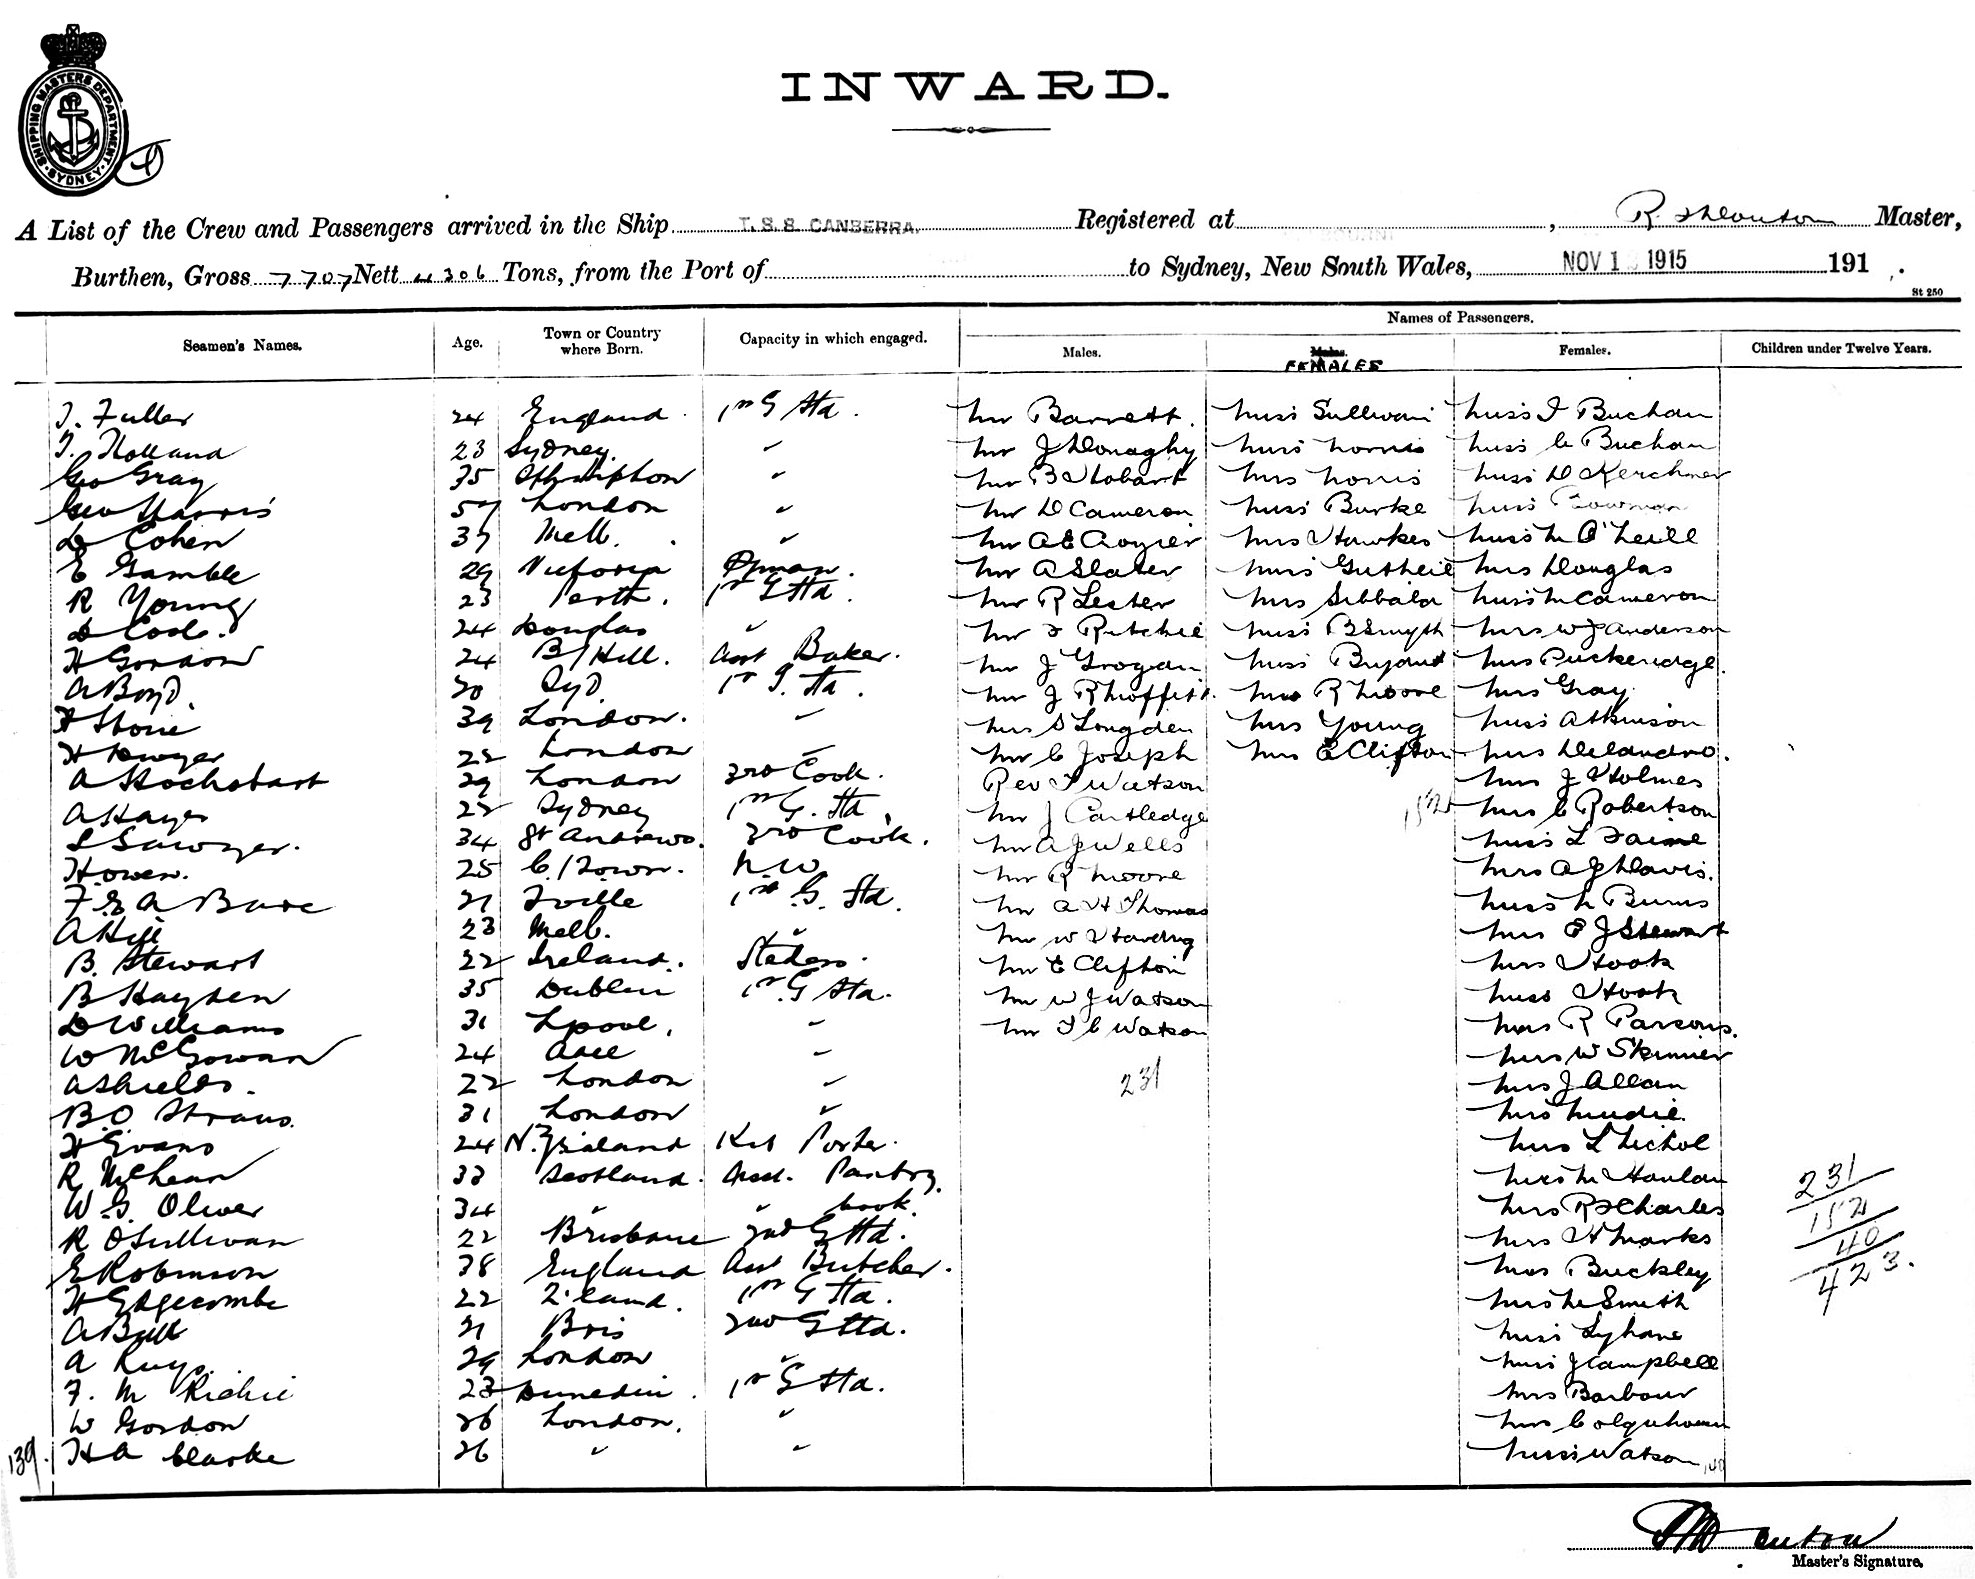 INWARD.
SHIPPING MASTERS DEPARTMENT SYDNEY
A List of the Crew and Passengers arrived in the Ship T.S.S. CANBERRA. Registered at , R. Master,
Burthen, Gross 7707 Nett 4306 Tons, from the Port of to Sydney, New South Wales, NOV 1 1915 191 .
St 250
Seamen's Names. Age. Town or Country where Born. Capacity in which engaged. Names of Passengers.
Males. Males. FEMALES Females. Children under Twelve Years.
J. Fuller 24 England 1st G Std. Mr Barrett. Miss Sullivan Miss I Buchan
T. Holland 23 Sydney. " Mr J Donaghy Miss Norris Miss C Buchan
Geo Gray 35 Sthmpton " Mr B Hobart Mrs Norris Miss D Kerchner
Geo Harris 57 London " Mr D Cameron Miss Burke Miss Bowman
D Cohen 37 Melb. " Mr A E Crozier Mrs Hawkes Miss M O'Neill
E Gamble 29 Victoria Mr A Slater Miss Gutheil Mrs Douglas
R Young 23 Perth. 1st G Std. Mr R Lester Mrs Sibbald Miss M Cameron
D Cook. 24 Douglas " Mr J Ritchie Miss B Smyth Mrs W J Anderson
H Gordon 24 B/Hill. Asst Baker. Mr J Grogan Miss Bryant Mrs Puckeridge.
A Boyd. 30 Syd. 1st G. Std. Mr J R Moffitt. Mrs R Moore Mrs Gray
H Stone 39 London. " Mrs S Longden Mrs Young Miss Atkinson
H Dwyer 22 London " Mr C Joseph Mrs E Clifton Mrs
A Hochstart 29 London 3rd Cook. Rev F Watson Mrs J Holmes
A Hayes 22 Sydney 1st G. Std Mr J Cartledge 152 Mrs C Robertson
L Sawyer. 34 St Andrews. 3rd Cook. Mr A J Wells Miss L
H Owen. 25 C/Town. N.W. Mr R Moore Mrs A J Davis.
F. E A Buse 21 T'ville 1st G. Std. Mr A H Thomas Miss M Burns
A Hill 23 Melb. " Mr W Harding Mrs E J Stewart
B. Stewart 22 Ireland. Stdess. Mr E Clifton Mrs Hook
B Hayden 35 Dublin 1st G Std. Mr W J Watson Miss Hook
D Williams 31 Lpool. " Mr F C Watson Mrs R Parsons.
W McGowan 24 " Mrs W Skinner
A Shields. 22 London " 231 Mrs J Allan
B.O. Straus. 31 London " Mrs Mudie.
H Evans 24 N. Zealand Kit Porter. Mrs L Nichol
R McLean 33 Scotland. Asst. Pantry. Mrs M Hanlan 231
W. G. Oliver 34 " " Cook. Mrs R S Charles 152
R O'Sullivan 22 Brisbane 2nd G Std. Mrs H Marks 40
E Robinson 38 England Asst Butcher. Mrs Buckley 423.
H Edgecombe 22 Z'land. 1st G Std. Mrs M Smith
A Bull 21 Bris 2nd G Std. Miss Lyhane
A 29 London " Miss J Campbell
F. M Richie 23 Dunedin. 1st G Std. Mrs Barbour
W Gordon 26 London. " Mrs Colquhoun
139. H A Clarke 26 " " Miss Watson 40
Master's Signature.